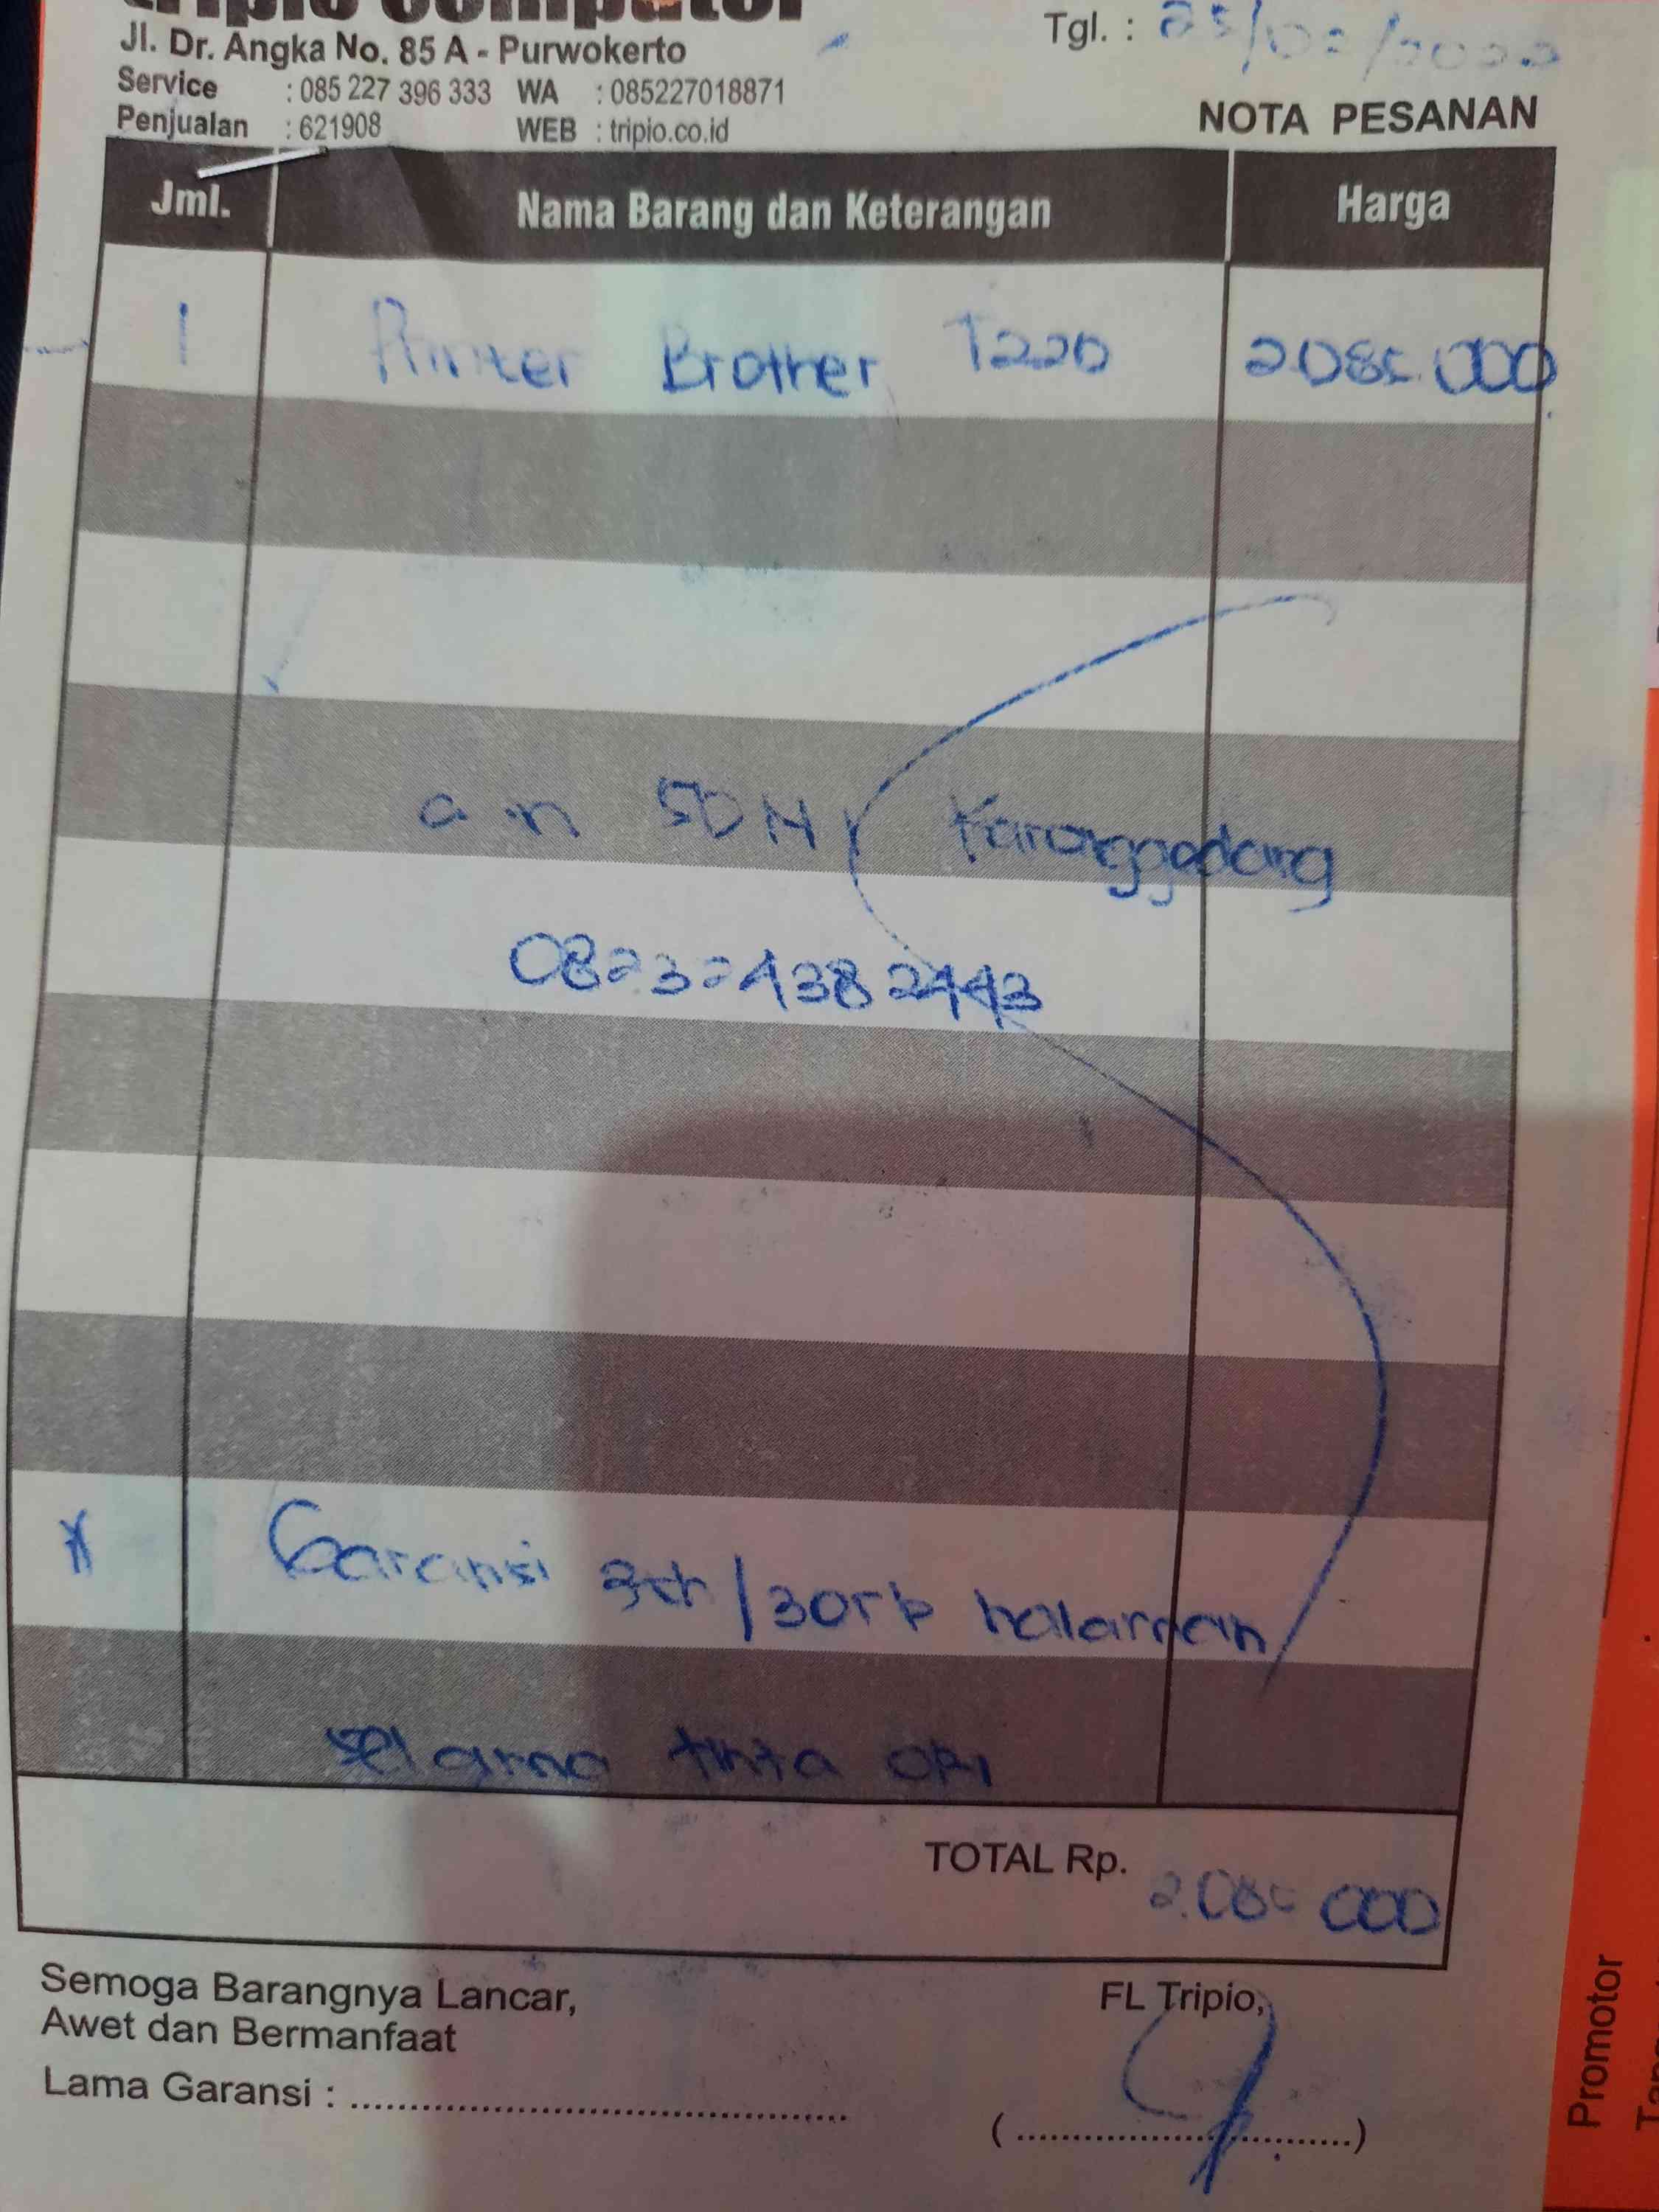 tripio computer
Jl. Dr. Angka No. 85 A - Purwokerto
Service : 085 227 396 333 WA : 085227018871
Penjualan : 621908 WEB : tripio.co.id
Tgl. :
NOTA PESANAN
Jml. Nama Barang dan Keterangan Harga
1 Printer Brother T220 2.085.000
a n SDN Karanggedang
082324382443
* Garansi 3th/30rb halaman
selama tinta ORI
TOTAL Rp. 2.085.000
Semoga Barangnya Lancar,
Awet dan Bermanfaat
Lama Garansi : ............
FL Tripio,
(............)
Promotor